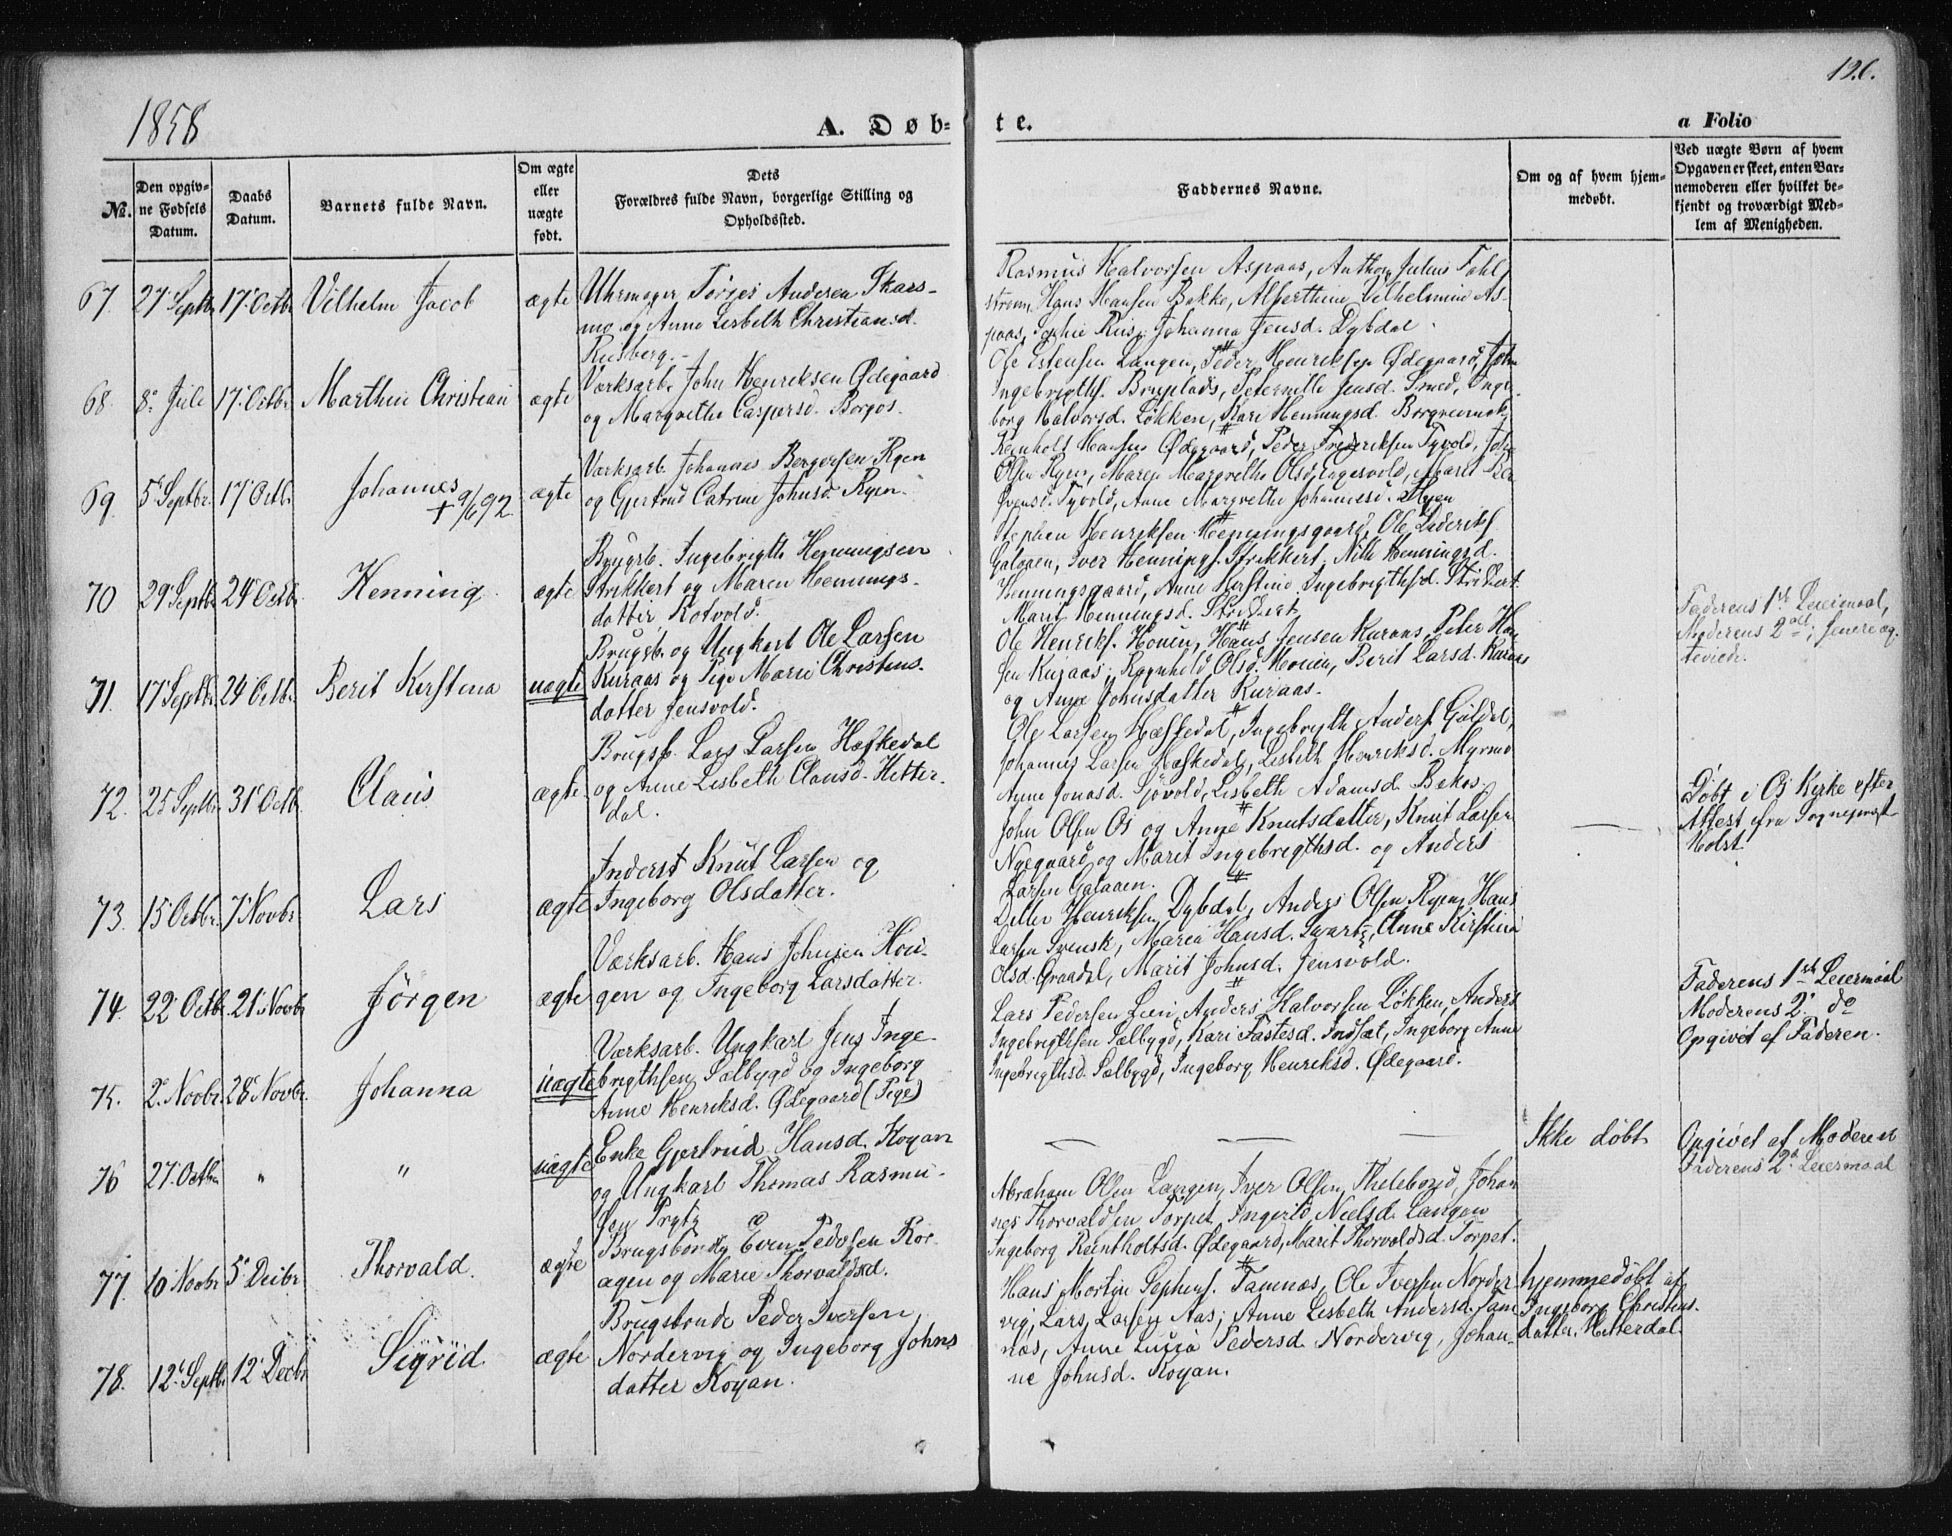 126.
1858
A. Døb-
te.
a Folio
No.
Den opgiv-
ne Fødsels
Datum.
Daabs
Datum.
Barnets fulde Navn.
Om ægte
eller
uægte
født.
Dets
Forældres fulde Navn, borgerlige Stilling og
Opholdssted.
Faddernes Navne.
Om og af hvem hjem-
medøbt.
Ved uægte Børn af hvem
Opgaven er skeet, enten Bar-
nemoderen eller hvilket be-
kjendt og troværdigt Med-
lem af Menigheden.
67. 27 Septbr 17 Octbr Vilhelm Jacob ægte
Uhrmager Törjes Andersen Skars-
mo og Anne Lisbeth Christiansd.
Rusberg.
Rasmus Halvorsen Aspaas, Anthon Julius Fahl
strøm, Hans Hansen Bakke, Alberthine Vilhelmine As-
paas, Sophie Rus, Johanna Jensd. Dybdal.
68. 8 Juli 17 Octbr Marthin Christian ægte
Værksarb. John Henriksen Ødegaard
og Margrethe Caspersd. Borgos.
Ole Estensen Langen, Peder Henriksen Ødegaard, John
Ingebrigths. Brynplads, Peternille Jensd. Smed, Inge-
borg Halvorsd. Løkken, Kari Henningsd. Borgvemoe
69. 5 Septbr. 17 Octbr. Johannes ægte
+ 9/6 92
Værksarb. Johannes Bergersen Ryen
og Gjertrud Catrine Johnsd. Ryen.
Reinholt Hansen Ødegaard, Peder Frederiksen Tyvold, John
Olsen Ryen, Maren Margrethe Olsd. Engesvold, Marit
Svensd. Tyvold, Anne Margrethe Johannesd. Ryen
70 29 Septbr 24 Octbr. Henning ægte
Brugsb. Ingebrigth Henningsen
Strikkert og Maren Hennings-
datter Kotvold.
Stephen Henriksen Henningsgaard, Ole Laderiks.
Galaaen, Iver Hennings. Strikkert, Nille Henningsd.
Henningsgaard, Anne Kirstine Ingebrigthsd. Strikert
Marit Henningsd. Strikert
71. 17 Septbr. 24 Octbr. Berit Kirstina uægte
Brugsb. og Ungkarl Ole Larsen
Kuraas og Pige Marie Christens-
datter Jensvold.
Ole Henriks. Houen, Hans Jensen Kuraas, Peter Han
sen Kuraas, Ragnhild Olsd. Houen, Berit Larsd. Kuraas
og Anne Johnsdatter Kuraas.
Faderens 1ste Leiermaal,
Moderens 2det, senere æg-
teviede.
72. 25 Septbr. 31 Octb. Claus ægte
Brugsb. Lars Larsen Hæskedal
og Anne Lisbeth Clausd. Hitter-
dal.
Ole Larsen Hæskedal, Ingebrigth Anders. Guldal,
Johannes Larsen Hæskedal, Lisbeth Henriksd. Myrmo
Anne Jonasd. Sjøvold, Lisbeth Adamsd. Bekos
73. 15 Octbr. 7 Novbr Lars ægte
Inderst Knut Larsen og
Ingeborg Olsdatter.
John Olsen Os og Anne Knutsdatter, Knut Larsen
Nyegaard og Marit Ingebrigthsd. og Anders
Larsen Galaaen.
Døbt i Os Kirke efter
Attest fra Sognepræst
Holst.
74. 22 Octbr. 21 Novbr Jörgen ægte
Værksarb. Hans Johnsen Hou-
gen og Ingeborg Larsdatter.
Ditler Henriksen Dybdal, Anders Olsen Ryen, Hans
Larsen Svensk, Maria Hansd. Svartz, Anne Kirstina
Olsd. Graadal, Marit Johnsd. Jensvold.
75. 2 Novbr. 28 Novbr. Johanna uægte
Værksarb. Ungkarl Jens Inge-
brigthsen Sælbygd og Ingeborg
Anne Henriksd. Ødegaard (Pige)
Lars Pedersen Lien, Anders Halvorsen Løkken, Anders
Ingebrigthsen Sælbygd, Kari Fastesd. Indset, Ingeborg Anne
Ingebrigthsd. Sælbygd, Ingeborg Henriksd. Ødegaard.
Faderens 1ste Leiermaal
Moderens 2 do
Opgivet af Faderen.
76 27 Octbr " " uægte
Enke Gjertrud Hansd. Koyan
og Ungkarl Thomas Rasmu-
sen Prytz
Ikke døbt
Opgivet af Moderen
Faderens 2d Leiermaal
77. 10 Novbr 5 Decbr Thorvald. ægte
Brugsbonde Even Pedersen Kor-
aaen og Marie Thorvaldsd.
Abraham Olsen Langen, Iver Olsen Theleborg, Johan
nes Thorvaldsen Torpet, Ingerid Nielsd. Langen
Ingeborg Reintholtsd. Ødegaard, Marit Thorvaldsd. Torpet.
78. 12 Septbr 12 Decbr Sigrid ægte
Brugsbonde Peder Iversen
Nordervig og Ingeborg Johns
datter Koyan.
Hans Mortin Stephens. Tamnæs, Ole Iversen Norder
vig, Lars Larsen Aas, Anne Lisbeth Andersd. Tam
næs, Anne Lucia Pedersd. Nordervig, Johan-
ne Johnsd. Koyan.
hjemmedøbt af
Ingeborg Christens-
datter Hitterdal.